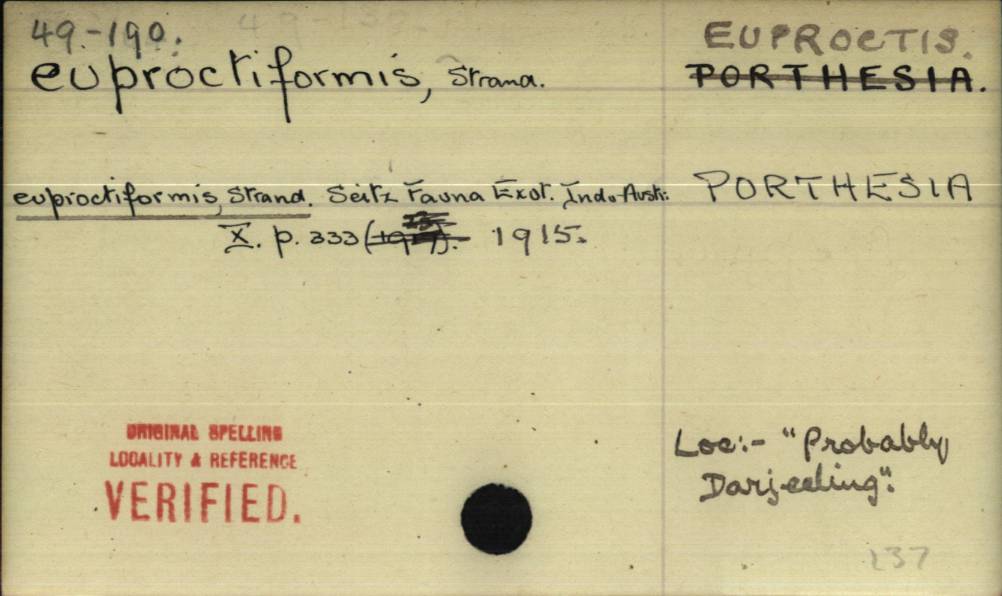 49.-190.
euproctiformis, Strand.
EUPROCTIS.
PORTHESIA.
euproctiformis, Strand. Seitz Fauna Exot. Indo-Austr: PORTHESIA
X. p. 333 1915.
ORIGINAL SPELLING
LOCALITY & REFERENCE
VERIFIED.
Loc:- "Probably
Darjeeling".
237